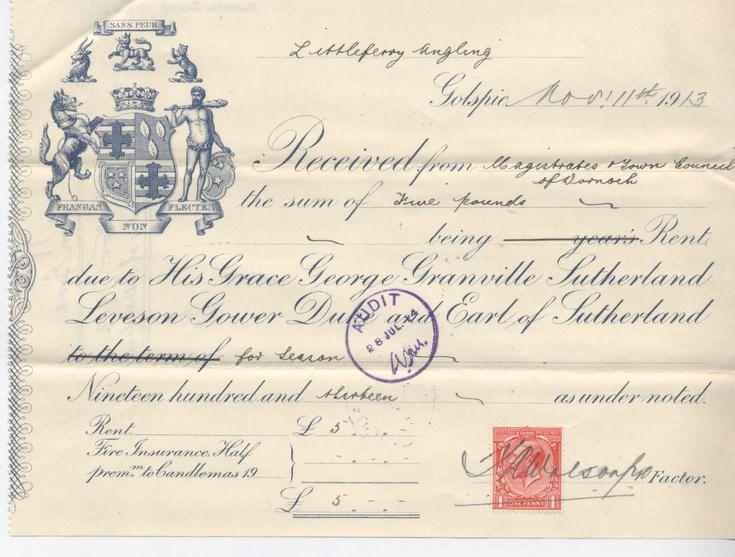 SANS PEUR
FRANGAS NON FLECTES
Littleferry Angling
Golspie, Nov. 11th 1913
Received from Magistrates & Town Council
of Dornoch
the sum of Five pounds
being year's Rent,
due to His Grace George Granville Sutherland
Leveson Gower Duke and Earl of Sutherland
to the term of for Season
Nineteen hundred and thirteen as under noted.
Rent £ 5 . - . -
Fire Insurance, Half
premm. to Candlemas 19
£ 5 . - . -
AUDIT
28 JUL. 14
ONE PENNY
Factor.